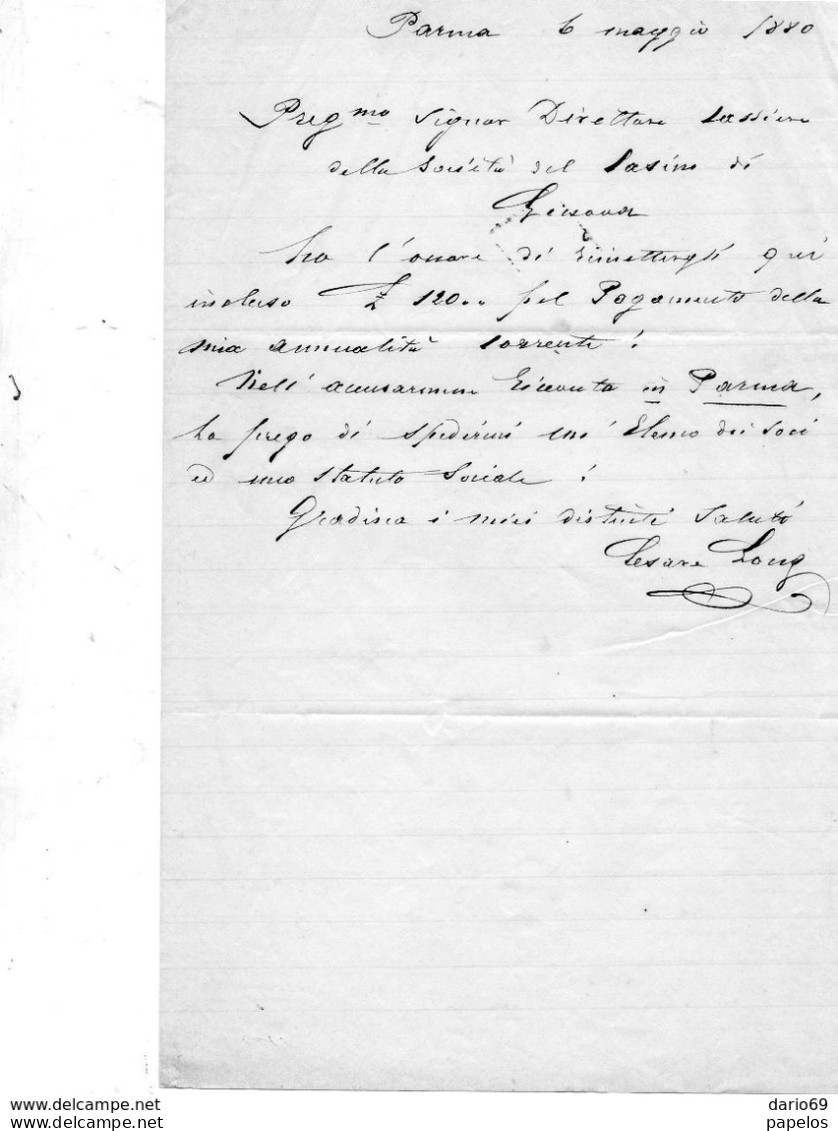 Parma 6 maggio 1880
Pregmo Signor Direttore Cassiere
della Società del Casino di
Genova
Ho l'onore di rimettergli qui
incluso £ 120.. pel Pagamento della
mia annualità corrente!
Nell' accusarmene ricevuta in Parma,
la prego di spedirmi un' Elenco dei Soci
ed uno Statuto Sociale!
Gradisca i miei distinti Saluti
Cesare Long
www.delcampe.net
dario69
www.delcampe.net
papelos